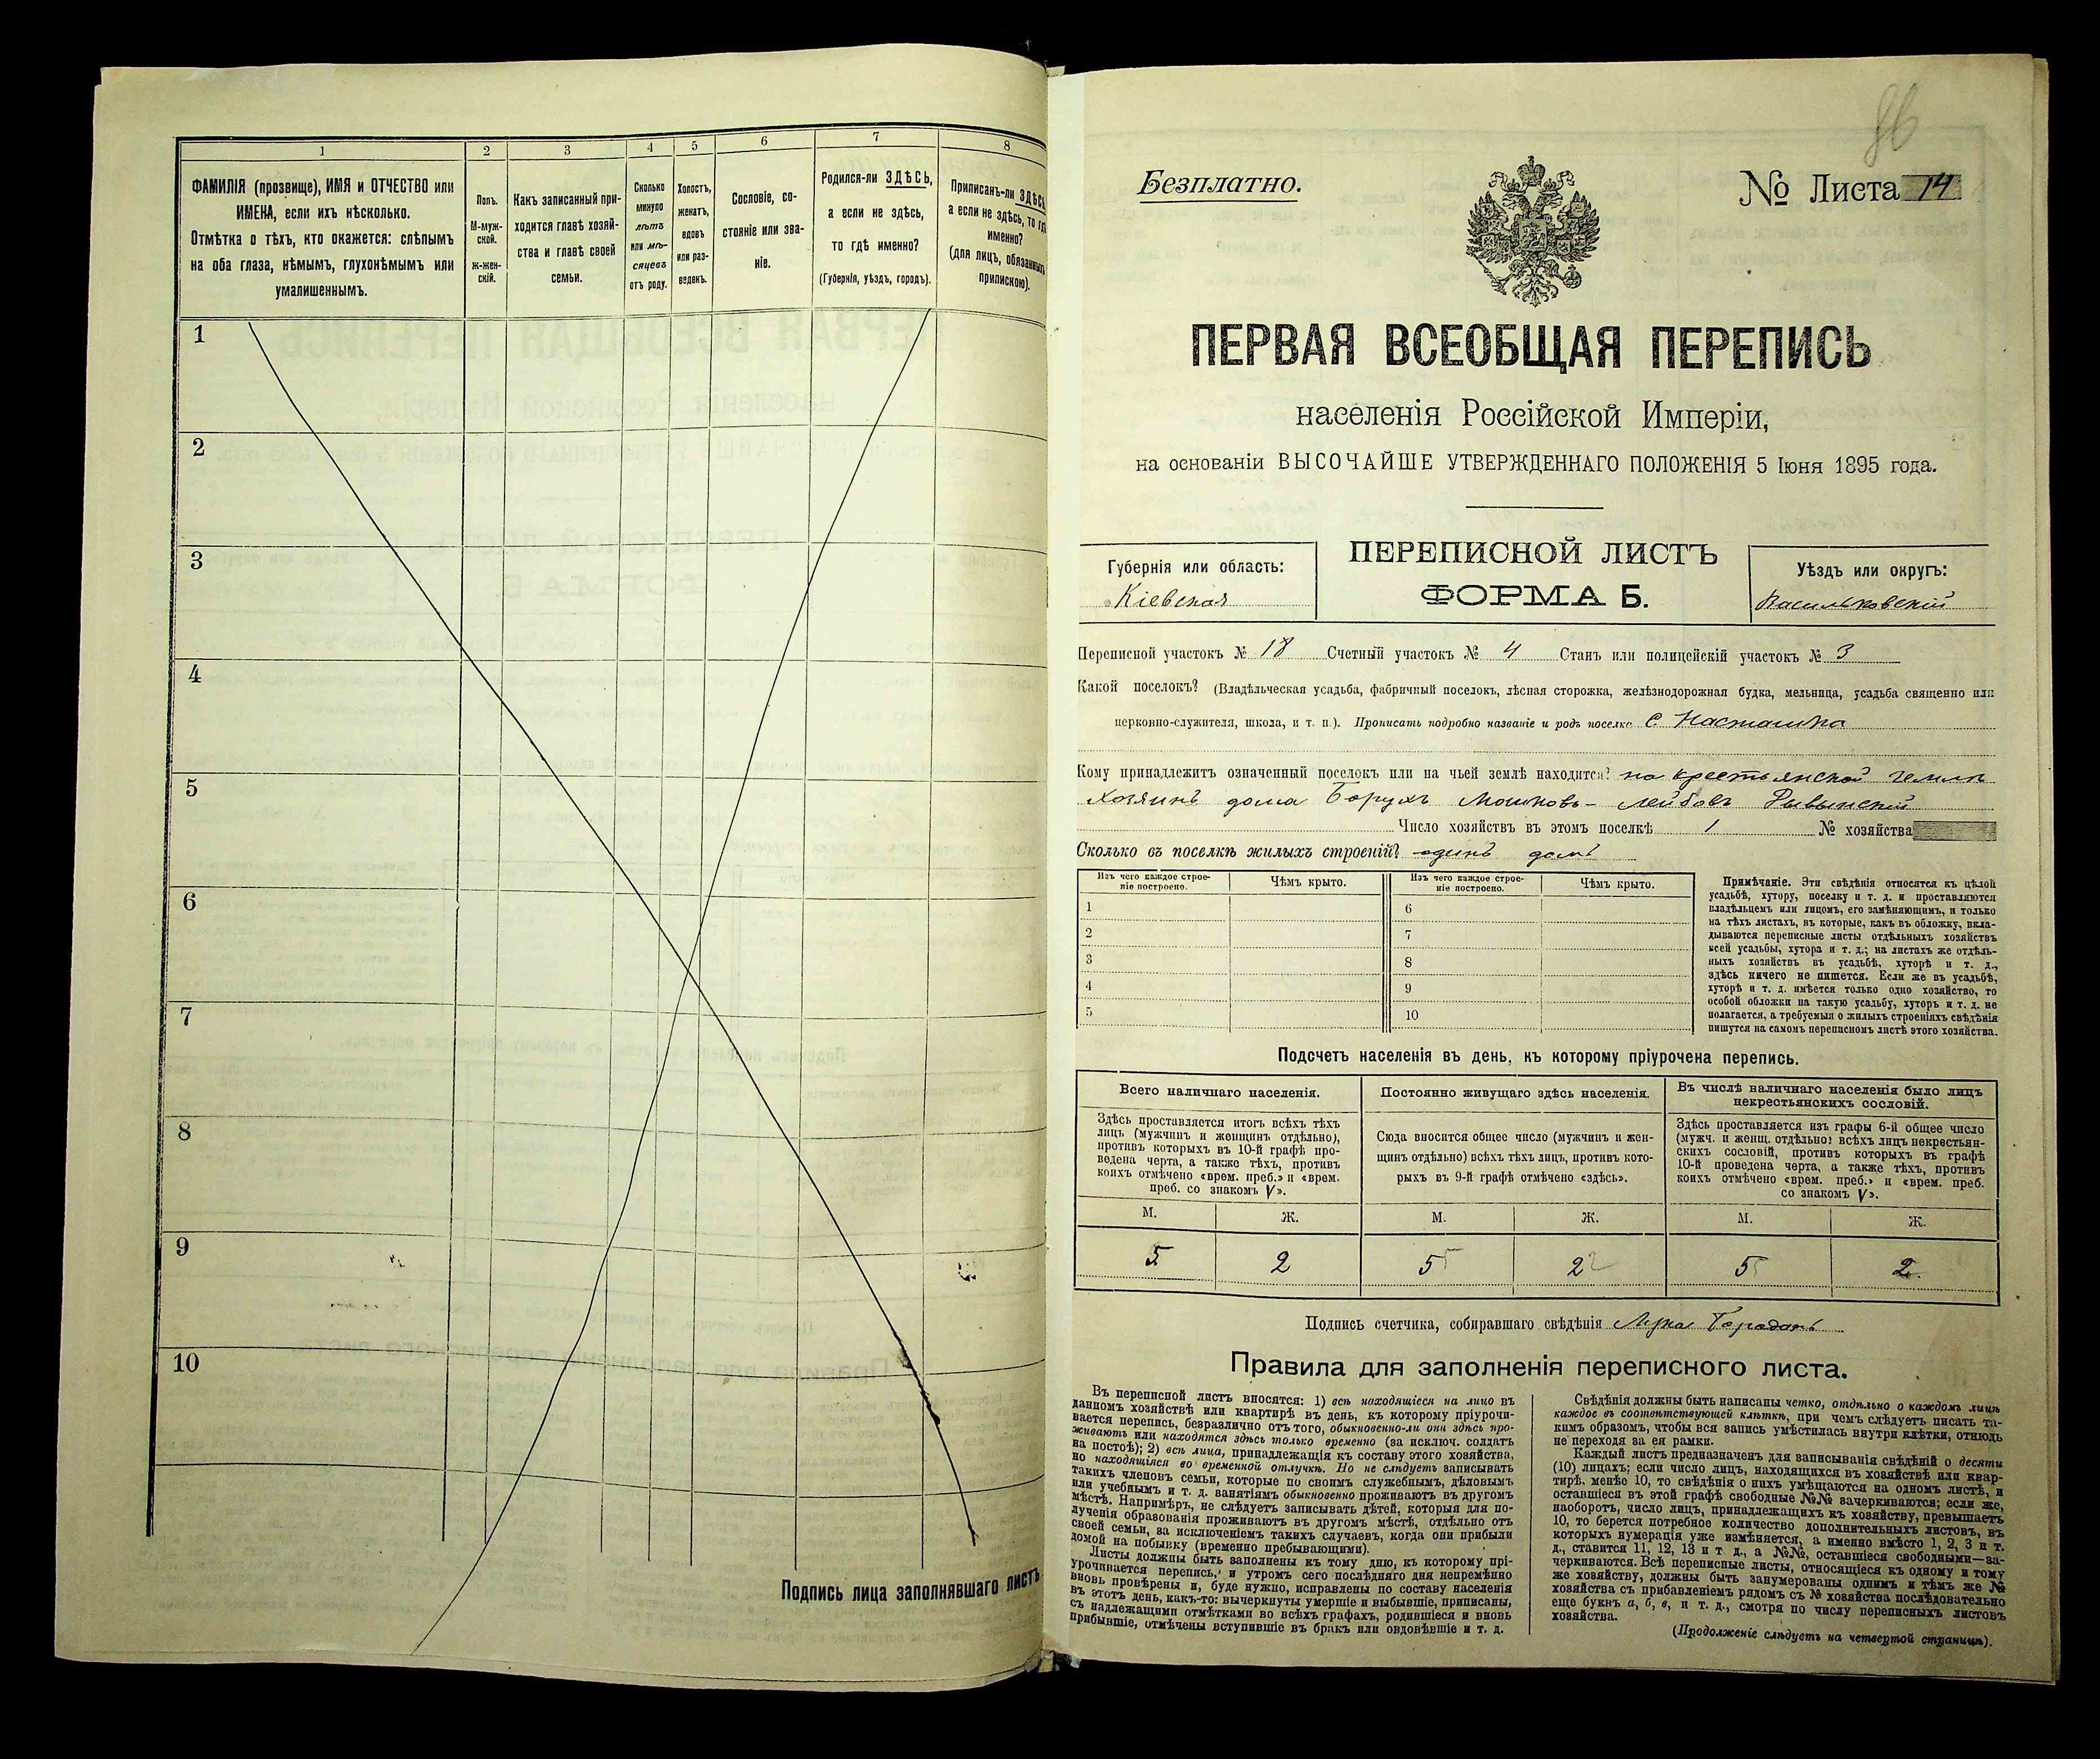 1
2
3
4
5
6
7
8
ФАМИЛІЯ (прозвище), ИМЯ и ОТЧЕСТВО или
ИМЕНА, если ихъ нѣсколько.
Отмѣтка о тѣхъ, кто окажется: слѣпымъ
на оба глаза, нѣмымъ, глухонѣмымъ или
умалишеннымъ.
Полъ.
М-муж-
ской.
Ж-жен-
скій.
Какъ записанный при-
ходится главѣ хозяй-
ства и главѣ своей
семьи.
Сколько
минуло
лѣтъ
или мѣ-
сяцевъ
отъ роду.
Холостъ,
женатъ,
вдовъ
или раз-
веденъ.
Сословіе, со-
стояніе или зва-
ніе.
Родился-ли ЗДѢСЬ,
а если не здѣсь,
то гдѣ именно?
(Губернія, уѣздъ, городъ).
Приписанъ-ли ЗДѢСЬ,
а если не здѣсь, то гдѣ
именно?
(для лицъ, обязанныхъ
припискою).
1
2
3
4
5
6
7
8
9
10
Подпись лица заполнявшаго листъ
86
Безплатно.
№ Листа 14
ПЕРВАЯ ВСЕОБЩАЯ ПЕРЕПИСЬ
населенія Россійской Имперіи,
на основаніи ВЫСОЧАЙШЕ УТВЕРЖДЕННАГО ПОЛОЖЕНІЯ 5 Іюня 1895 года.
Губернія или область:
Кіевская
ПЕРЕПИСНОЙ ЛИСТЪ
ФОРМА Б.
Уѣздъ или округъ:
Васильковскій
Переписной участокъ № 18 Счетный участокъ № 4 Станъ или полицейскій участокъ № 3
Какой поселокъ? (Владѣльческая усадьба, фабричный поселокъ, лѣсная сторожка, желѣзнодорожная будка, мельница, усадьба священно или
церковно-служителя, школа, и т. п.). Прописать подробно названіе и родъ поселка с. Насташка
Кому принадлежитъ означенный поселокъ или на чьей землѣ находится? на крестьянской землѣ
Хозяинъ дома Борухъ Мошковъ-Лейбовъ
Число хозяйствъ въ этомъ поселкѣ 1 № хозяйства
Сколько въ поселкѣ жилыхъ строеній? одинъ домъ
Изъ чего каждое строе-
ніе построено.
Чѣмъ крыто.
Изъ чего каждое строе-
ніе построено.
Чѣмъ крыто.
1
2
3
4
5
6
7
8
9
10
Примѣчаніе. Эти свѣдѣнія относятся къ цѣлой
усадьбѣ, хутору, поселку и т. д. и проставляются
владѣльцемъ или лицомъ, его замѣняющимъ, и только
на тѣхъ листахъ, въ которые, какъ въ обложку, вкла-
дываются переписные листы отдѣльныхъ хозяйствъ
всей усадьбы, хутора и т. д.; на листахъ же отдѣль-
ныхъ хозяйствъ въ усадьбѣ, хуторѣ и т. д.,
здѣсь ничего не пишется. Если же въ усадьбѣ,
хуторѣ и т. д. имѣется только одно хозяйство, то
особой обложки на такую усадьбу, хуторъ и т. д. не
полагается, а требуемыя о жилыхъ строеніяхъ свѣдѣнія
пишутся на самомъ переписномъ листѣ этого хозяйства.
Подсчетъ населенія въ день, къ которому пріурочена перепись.
Всего наличнаго населенія.
Здѣсь проставляется итогъ всѣхъ тѣхъ
лицъ (мужчинъ и женщинъ отдѣльно),
противъ которыхъ въ 10-й графѣ про-
ведена черта, а также тѣхъ, противъ
коихъ отмѣчено «врем. преб.» и «врем.
преб. со знакомъ V».
Постоянно живущаго здѣсь населенія.
Сюда вносится общее число (мужчинъ и жен-
щинъ отдѣльно) всѣхъ тѣхъ лицъ, противъ кото-
рыхъ въ 9-й графѣ отмѣчено «здѣсь».
Въ числѣ наличнаго населенія было лицъ
некрестьянскихъ сословій.
Здѣсь проставляется изъ графы 6-й общее число
(мужч. и женщ. отдѣльно) всѣхъ лицъ некрестьян-
скихъ сословій, противъ которыхъ въ графѣ
10-й проведена черта, а также тѣхъ, противъ
коихъ отмѣчено «врем. преб.» и «врем. преб.
со знакомъ V».
М. Ж. М. Ж. М. Ж.
5 2 5 5 2 2 5 2
Подпись счетчика, собиравшаго свѣдѣнія Лука
Правила для заполненія переписного листа.
Въ переписной листъ вносятся: 1) всѣ находящіеся на лицо въ
данномъ хозяйствѣ или квартирѣ въ день, къ которому пріурочи-
вается перепись, безразлично отъ того, обыкновенно-ли они здѣсь про-
живаютъ или находятся здѣсь только временно (за исключ. солдатъ
на постоѣ); 2) всѣ лица, принадлежащія къ составу этого хозяйства,
но находящіяся во временной отлучкѣ. Но не слѣдуетъ записывать
такихъ членовъ семьи, которые по своимъ служебнымъ, дѣловымъ
или учебнымъ и т. д. занятіямъ обыкновенно проживаютъ въ другомъ
мѣстѣ. Напримѣръ, не слѣдуетъ записывать дѣтей, которыя для по-
лученія образованія проживаютъ въ другомъ мѣстѣ, отдѣльно отъ
своей семьи, за исключеніемъ такихъ случаевъ, когда они прибыли
домой на побывку (временно пребывающими).
Листы должны быть заполнены къ тому дню, къ которому прі-
урочивается перепись, и утромъ сего послѣдняго дня непремѣнно
вновь провѣрены и, буде нужно, исправлены по составу населенія
въ этотъ день, какъ-то: вычеркнуты умершіе и выбывшіе, приписаны,
съ надлежащими отмѣтками во всѣхъ графахъ, родившіеся и вновь
прибывшіе, отмѣчены вступившіе въ бракъ или овдовѣвшіе и т. д.
Свѣдѣнія должны быть написаны четко, отдѣльно о каждомъ лицѣ
каждое въ соотвѣтствующей клѣткѣ, при чемъ слѣдуетъ писать та-
кимъ образомъ, чтобы вся запись умѣстилась внутри клѣтки, отнюдь
не переходя за ея рамки.
Каждый листъ предназначенъ для записыванія свѣдѣній о десяти
(10) лицахъ; если число лицъ, находящихся въ хозяйствѣ или квар-
тирѣ, менѣе 10, то свѣдѣнія о нихъ умѣщаются на одномъ листѣ, и
оставшіеся въ этой графѣ свободные №№ вачеркиваются; если же,
наоборотъ, число лицъ, принадлежащихъ къ хозяйству, превышаетъ
10, то берется потребное количество дополнительныхъ листовъ, въ
которыхъ нумерація уже измѣняется, а именно вмѣсто 1, 2, 3 и т.
д., ставится 11, 12, 13 и т. д., а №№, оставшіеся свободными—за-
черкиваются. Всѣ переписные листы, относящіеся къ одному и тому
же хозяйству, должны быть занумерованы однимъ и тѣмъ же №
хозяйства съ прибавленіемъ рядомъ съ № хозяйства послѣдовательно
еще буквъ а, б, в, и т. д., смотря по числу переписныхъ листовъ
хозяйства.
(Продолженіе слѣдуетъ на четвертой страницѣ).